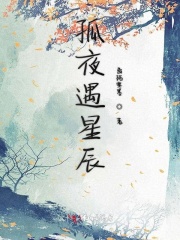 孤夜遇星辰
著